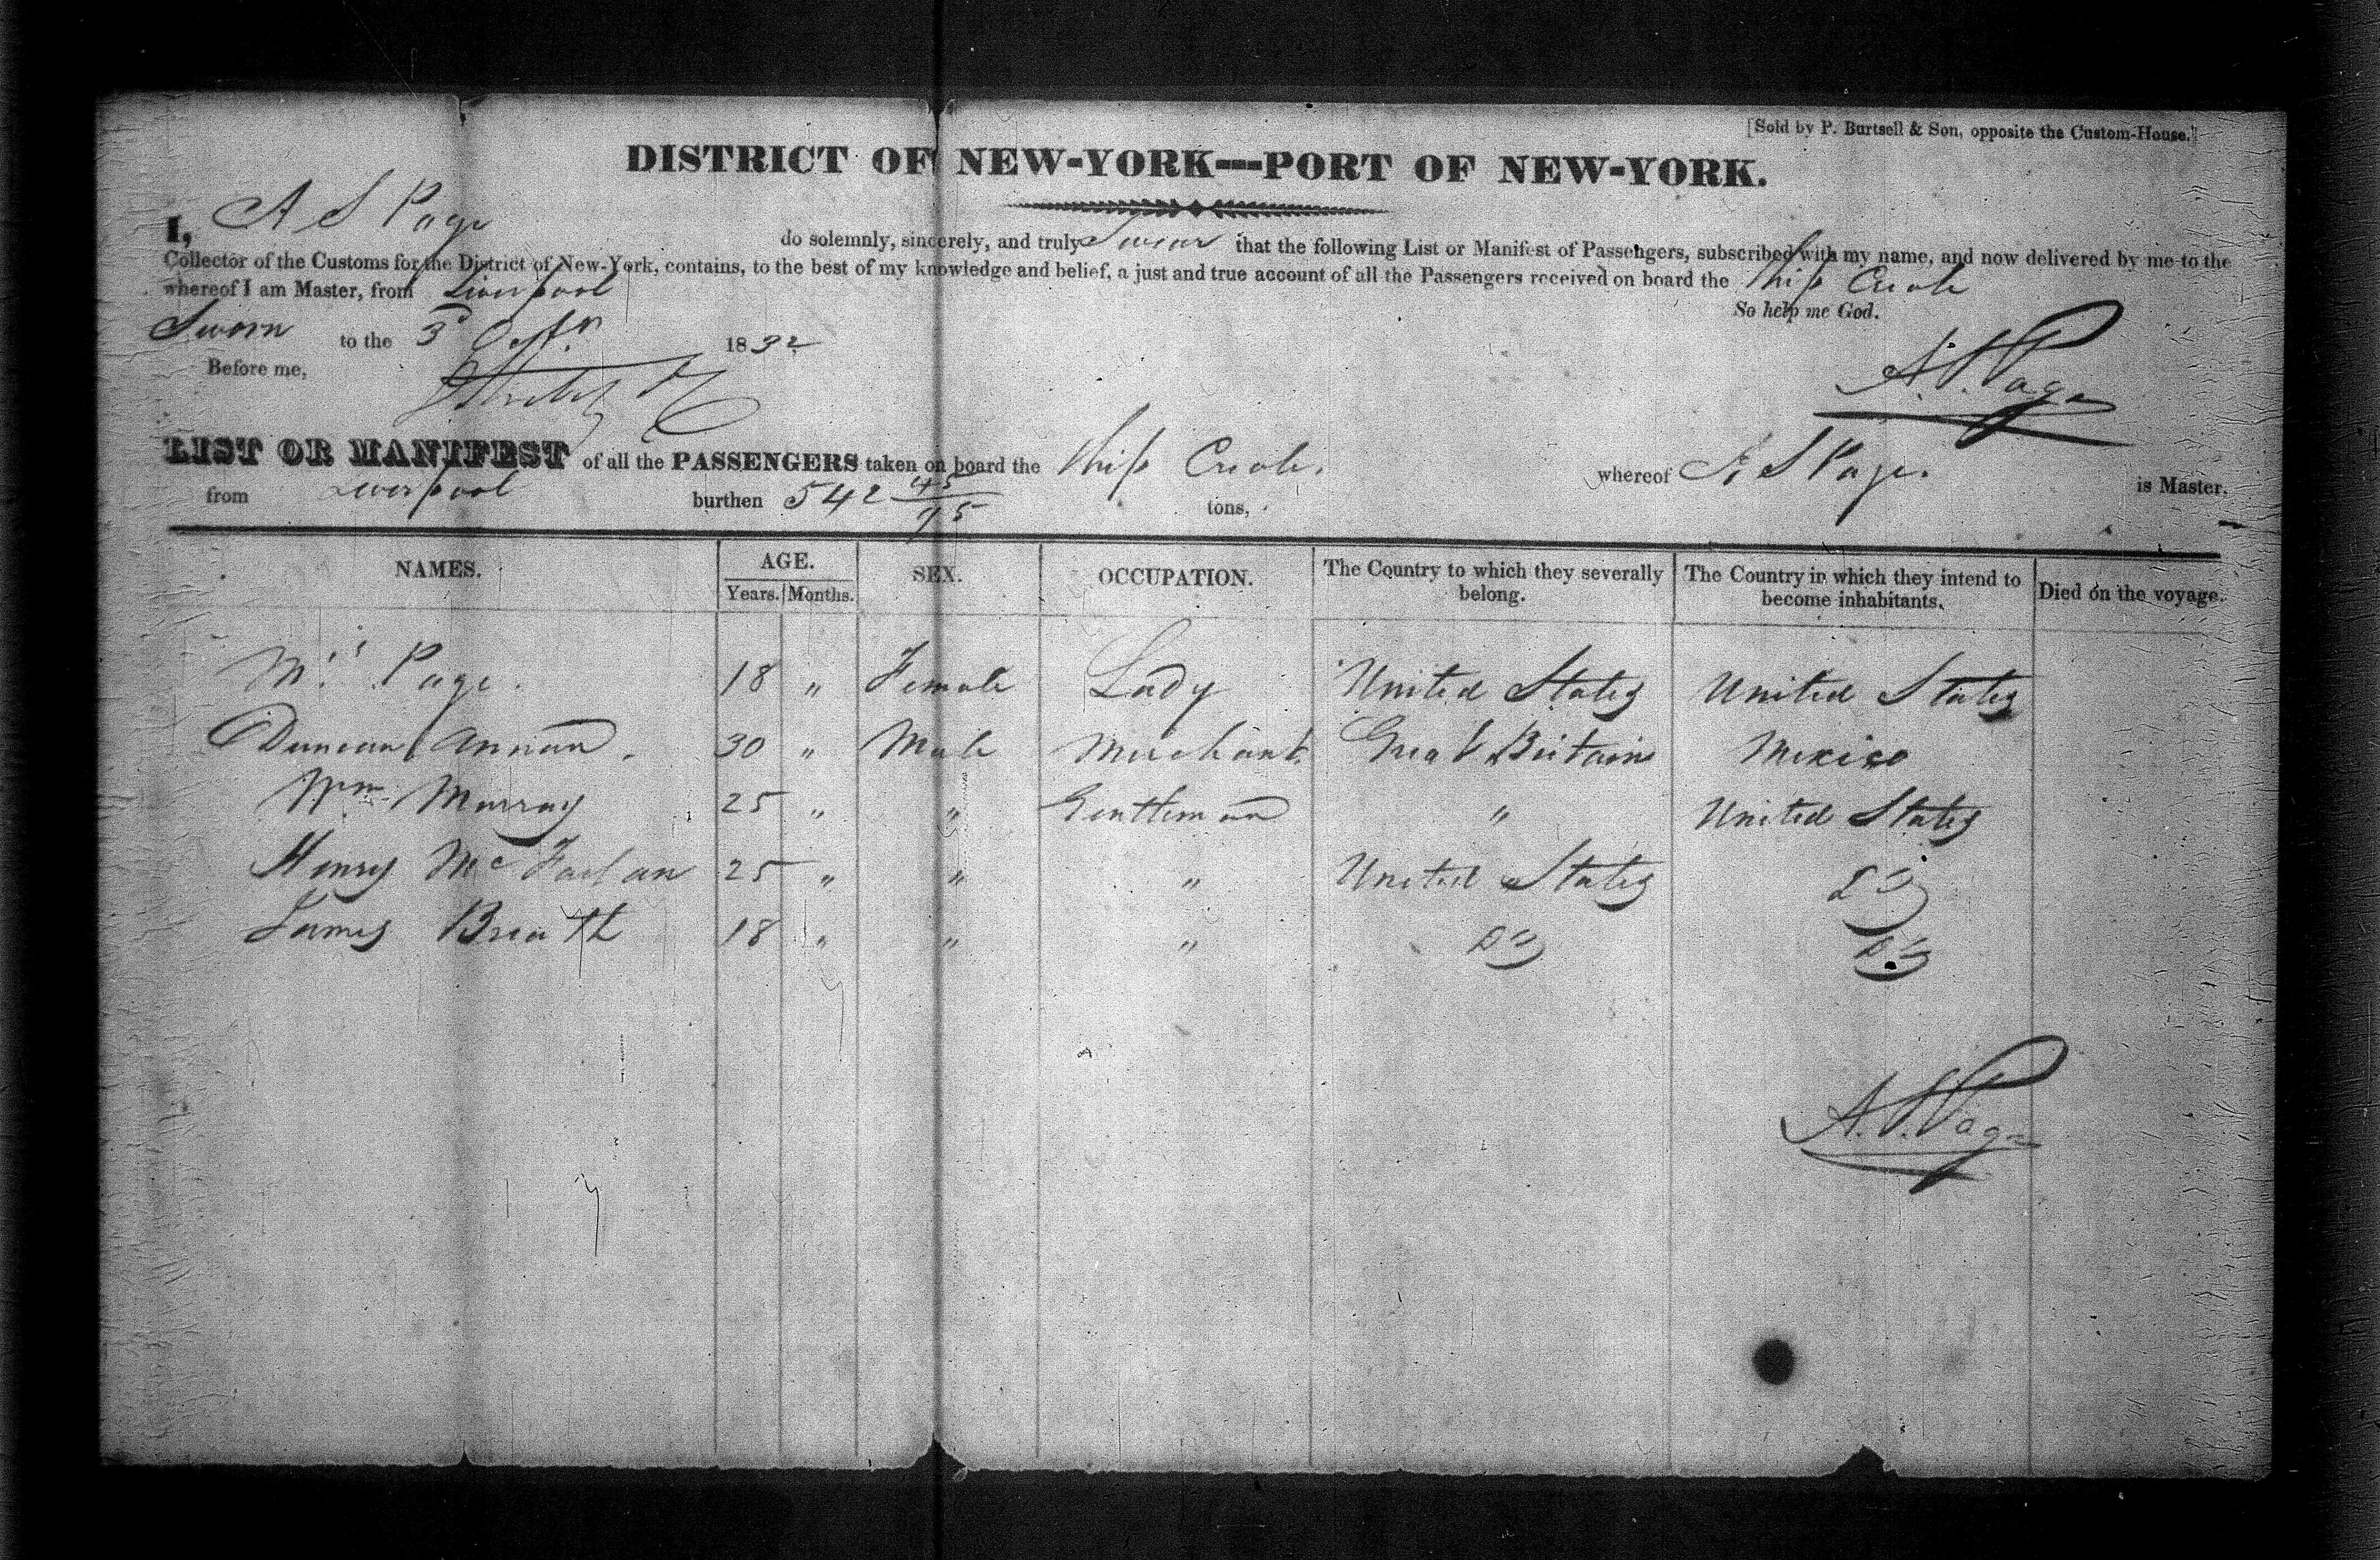 [Sold by P. Burtsell & Son, opposite the Custom-House.]
DISTRICT OF NEW-YORK—PORT OF NEW-YORK.
I, A S Page do solemnly, sincerely, and truly Swear that the following List or Manifest of Passengers, subscribed with my name, and now delivered by me to the
Collector of the Customs for the District of New-York, contains, to the best of my knowledge and belief, a just and true account of all the Passengers received on board the Ship Creole
whereof I am Master, from Liverpool
So help me God.
Sworn to the 3d 1832
A. S. Page
Before me,
LIST OR MANIFEST of all the PASSENGERS taken on board the Ship Creole. whereof A S Page. is Master,
from Liverpool burthen 542 45/95 tons,
NAMES. AGE. Years. Months. SEX. OCCUPATION. The Country to which they severally belong. The Country in which they intend to become inhabitants. Died on the voyage.
Mrs Page. 18 " Female Lady United States United States
Duncan Annan. 30 " Male Merchant Great Britain Mexico
Wm Murray 25 " " Gentleman " United States
Henry McFarlan 25 " " " United States Do
James Breath 18 " " " Do Do
A. S. Page